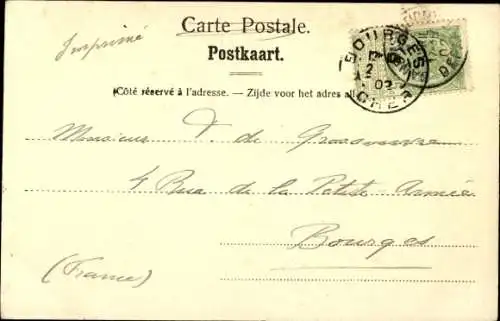 Imprimé
Carte Postale.
Postkaart.
(Côté réservé à l'adresse. — Zijde voor het adres
BOURGES
CHER
Monsieur de
4 Rue de la Petite Armée
Bourges
(France)